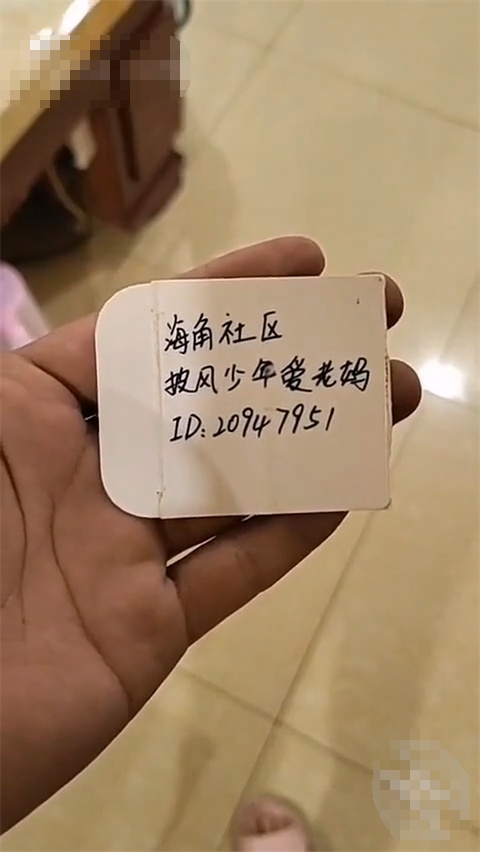 海角社区
披风少年爱老妈
ID:20947951